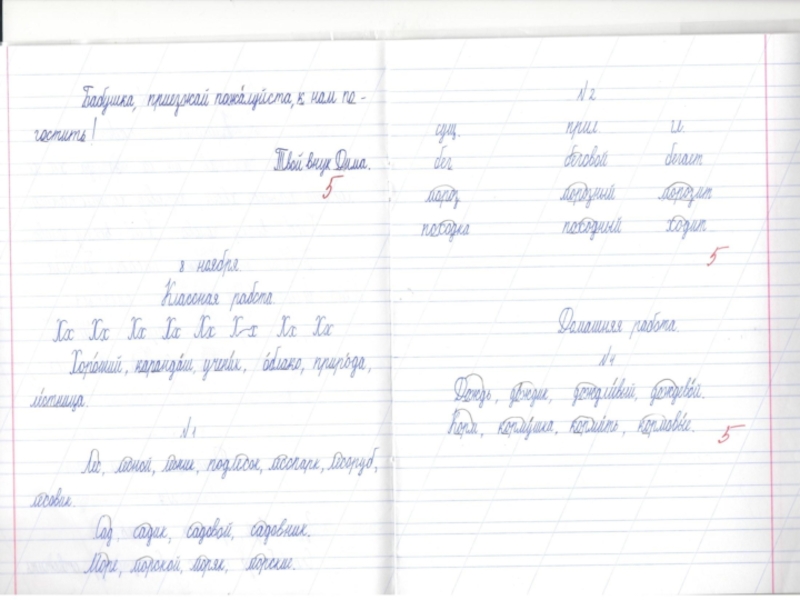 Бабушка, приезжай пожалуйста, к нам по-
гостить!
Твой внук Дима.
5
8 ноября.
Классная работа.
Хх Хх Хх Хх Хх Х-х Хх Хх
Хороший, карандаш, ученик, облако, природа,
лестница.
№1
Лес, лесной, лесник, подлесок, лесопарк, лесоруб,
лесовик.
Сад, садик, садовой, садовник.
Море, морской, моряк, морские.
№2
сущ. прил. гл.
бег беговой бегает
мороз морозный морозит
походка походный ходит
5
Домашняя работа.
№1
Дождь, дождик, дождливый, дождевой.
Корм, кормушка, кормить, кормовые.
5